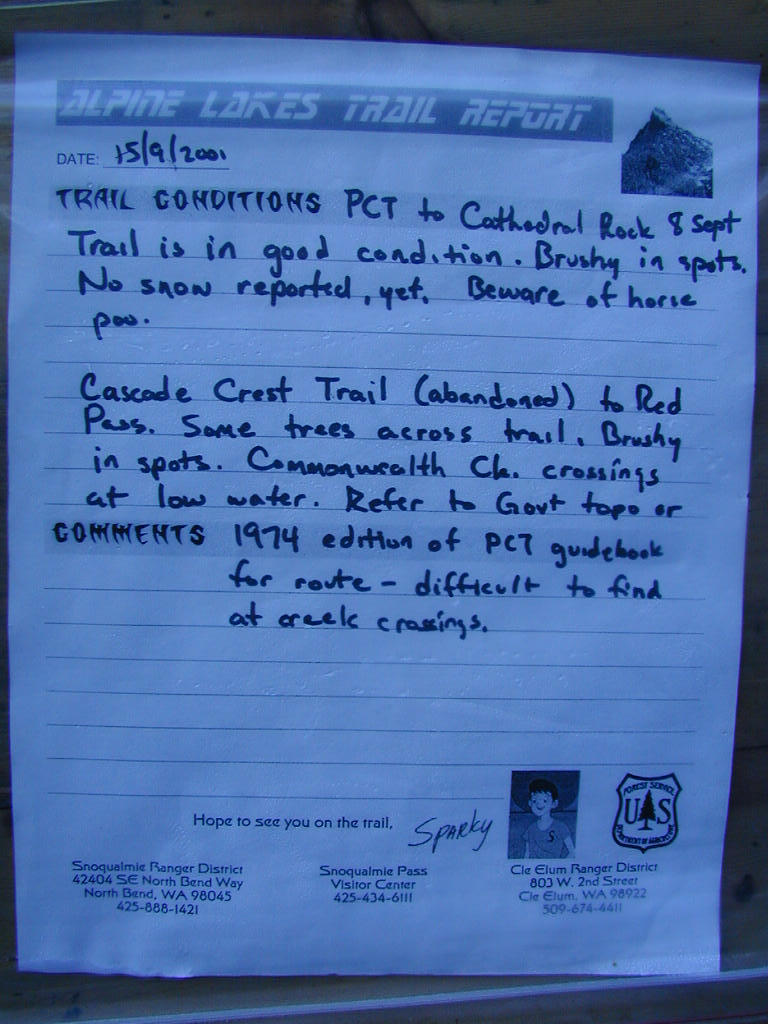 ALPINE LAKES TRAIL REPORT
DATE: 15/9/2001
TRAIL CONDITIONS PCT to Cathedral Rock 8 Sept
Trail is in good condition. Brushy in spots.
No snow reported, yet. Beware of horse
poo.
Cascade Crest Trail (abandoned) to Red
Pass. Some trees across trail. Brushy
in spots. Commonwealth Ck. crossings
at low water. Refer to Govt topo or
COMMENTS 1974 edition of PCT guidebook
for route - difficult to find
at creek crossings.
Hope to see you on the trail, SPARKY
S
FOREST SERVICE
U S
DEPARTMENT OF AGRICULTURE
Snoqualmie Ranger District
42404 SE North Bend Way
North Bend, WA 98045
425-888-1421
Snoqualmie Pass
Visitor Center
425-434-6111
Cle Elum Ranger District
803 W. 2nd Street
Cle Elum, WA 98922
509-674-4411